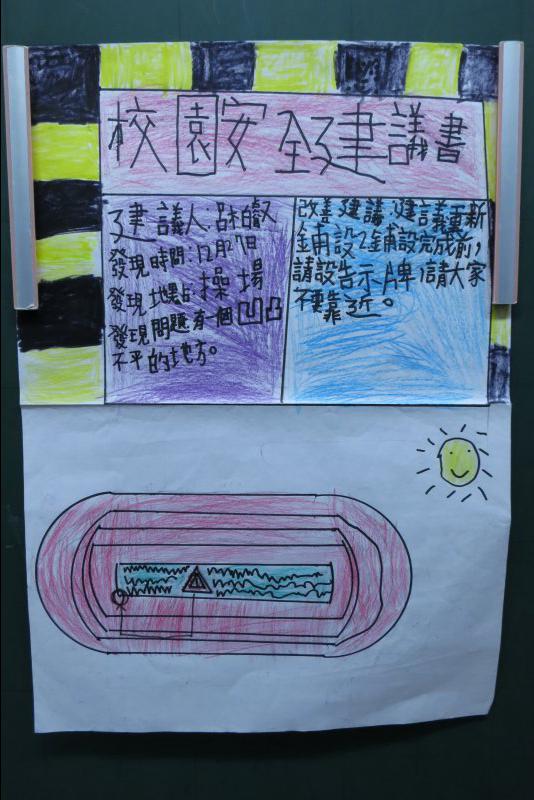 校園安全建議書
建議人:呂柏叡
發現時間:12月27日
發現地點:操場
發現問題:有一個凹凸
不平的地方。
改善建議:建議重新
鋪設2鋪設完成前,
請設告示牌,請大家
不要靠近。